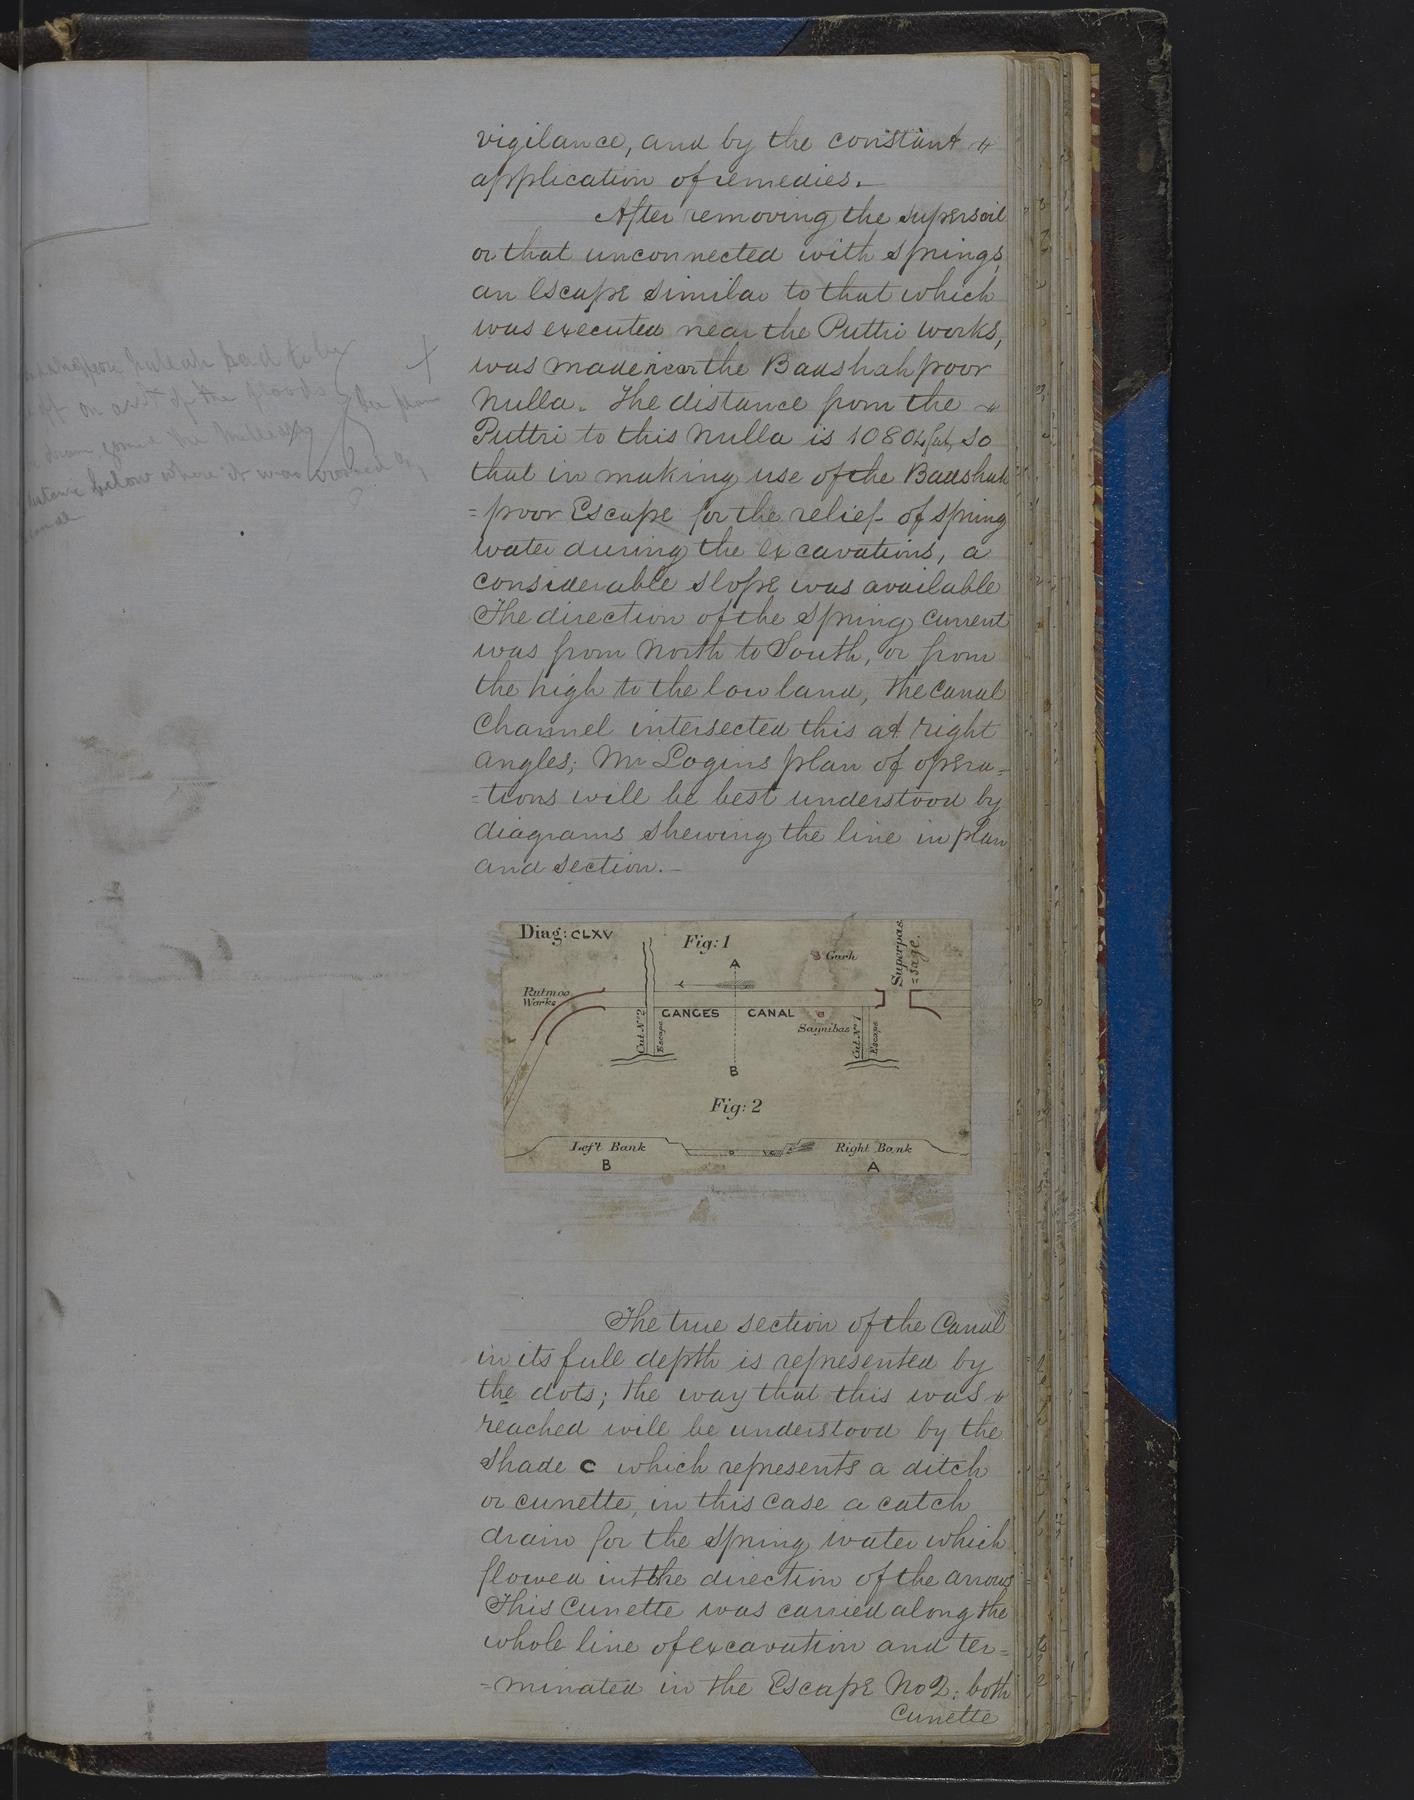 vigilance, and by the constant
application of remedies.—
After removing the supersoil
or that unconnected with springs,
an Escape similar to that which
was executed near the Puttri works,
was made near the Badshahpoor
Nulla. The distance from the
Puttri to this Nulla is 10804 feet, so
that in making use of the Badshah
=poor Escape for the relief of spring
water during the excavations, a
considerable slope was available
The direction of the spring current
was from North to South, or from
the high to the low land, the Canal
Channel intersected this at right
angles; Mr Logins plan of opera=
=tions will be best understood by
diagrams shewing the line in plan
and section.—
Diag: CLXV
Fig: 1
A
Gurh
Superpas
=sage.
Rutmoo
Works
GANGES CANAL
Cut No 2
Escape
Saynibas
Cut No 1
Escape
B
Fig: 2
Left Bank
Right Bank
B
A
The true section of the Canal
in its full depth is represented by
the dots; the way that this was
reached will be understood by the
shade C which represents a ditch
or cunette, in this case a catch
drain for the spring water which
flowed in the direction of the arrows
This Cunette was carried along the
whole line of excavation and ter=
=minated in the Escape No 2; both
Cunette
below where it was crossed by